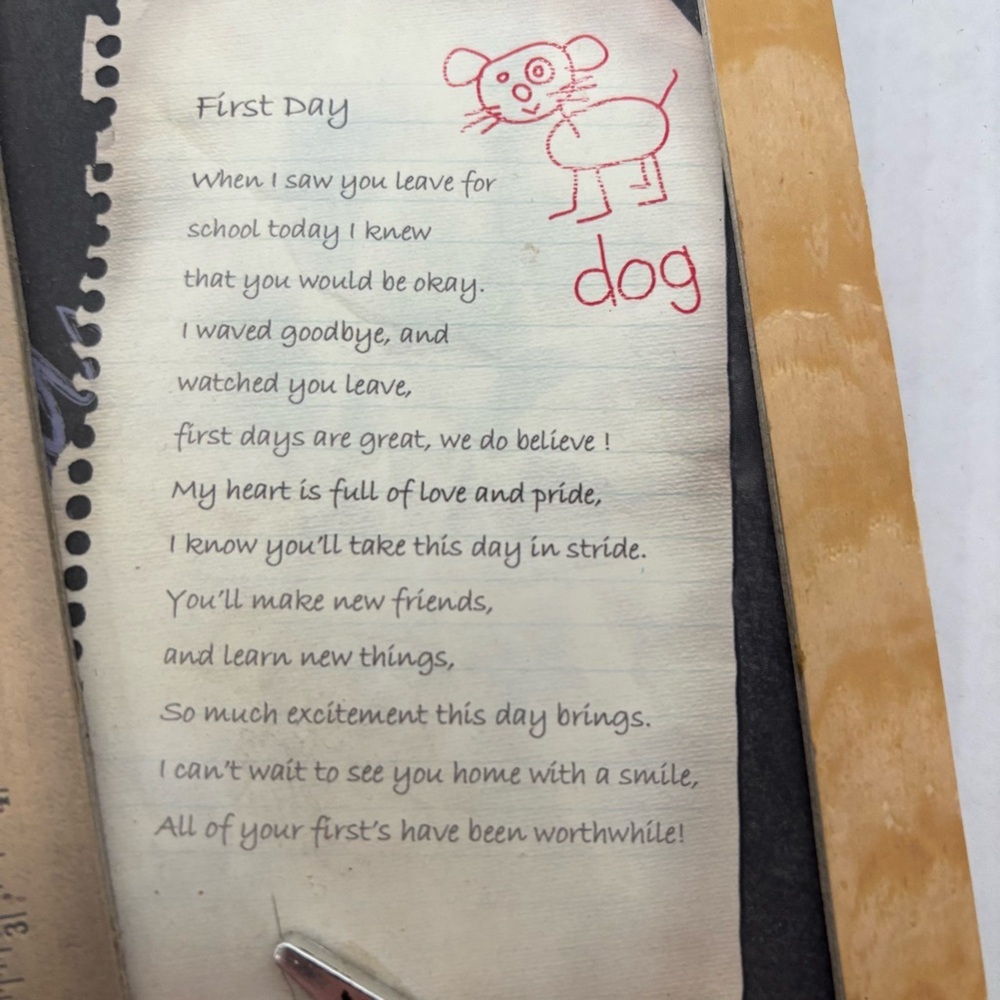 First Day
When I saw you leave for
school today I knew
that you would be okay.
I waved goodbye, and
watched you leave,
first days are great, we do believe !
My heart is full of love and pride,
I know you'll take this day in stride.
You'll make new friends,
and learn new things,
So much excitement this day brings.
I can't wait to see you home with a smile,
All of your first's have been worthwhile!
dog
3